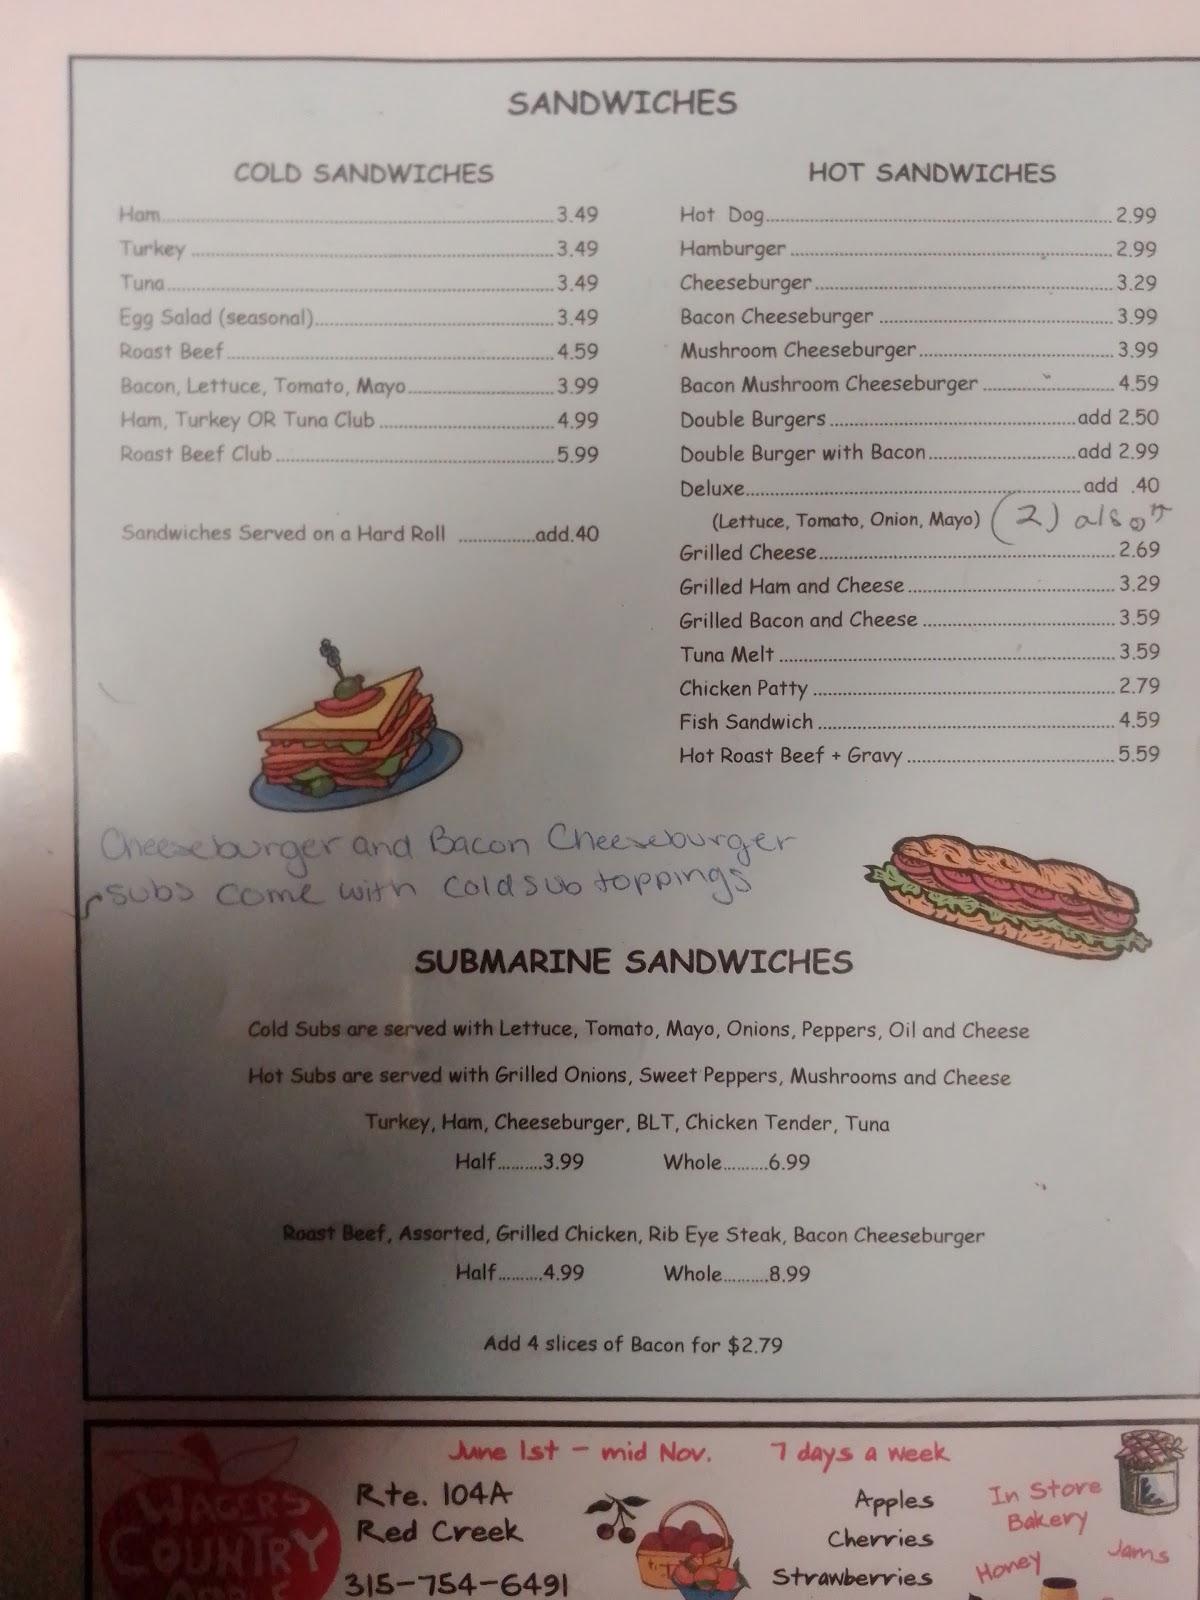 SANDWICHES
COLD SANDWICHES
Ham 3.49
Turkey 3.49
Tuna 3.49
Egg Salad (seasonal) 3.49
Roast Beef 4.59
Bacon, Lettuce, Tomato, Mayo 3.99
Ham, Turkey OR Tuna Club 4.99
Roast Beef Club 5.99
Sandwiches Served on a Hard Roll add.40
HOT SANDWICHES
Hot Dog 2.99
Hamburger 2.99
Cheeseburger 3.29
Bacon Cheeseburger 3.99
Mushroom Cheeseburger 3.99
Bacon Mushroom Cheeseburger 4.59
Double Burgers add 2.50
Double Burger with Bacon add 2.99
Deluxe add .40
(Lettuce, Tomato, Onion, Mayo) (2)
Grilled Cheese 2.69
Grilled Ham and Cheese 3.29
Grilled Bacon and Cheese 3.59
Tuna Melt 3.59
Chicken Patty 2.79
Fish Sandwich 4.59
Hot Roast Beef + Gravy 5.59
Cheeseburger and Bacon Cheeseburger
subs come with cold sub toppings
SUBMARINE SANDWICHES
Cold Subs are served with Lettuce, Tomato, Mayo, Onions, Peppers, Oil and Cheese
Hot Subs are served with Grilled Onions, Sweet Peppers, Mushrooms and Cheese
Turkey, Ham, Cheeseburger, BLT, Chicken Tender, Tuna
Half..........3.99 Whole..........6.99
Roast Beef, Assorted, Grilled Chicken, Rib Eye Steak, Bacon Cheeseburger
Half..........4.99 Whole..........8.99
Add 4 slices of Bacon for $2.79
June 1st - mid Nov. 7 days a week
WAGERS
COUNTRY
Rte. 104A
Red Creek
315-754-6491
Apples
Cherries
Strawberries
In Store
Bakery
Honey
Jams